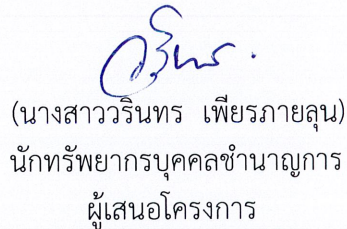 (นางสาววรินทร เพียรภายลุน)
นักทรัพยากรบุคคลชำนาญการ
ผู้เสนอโครงการ